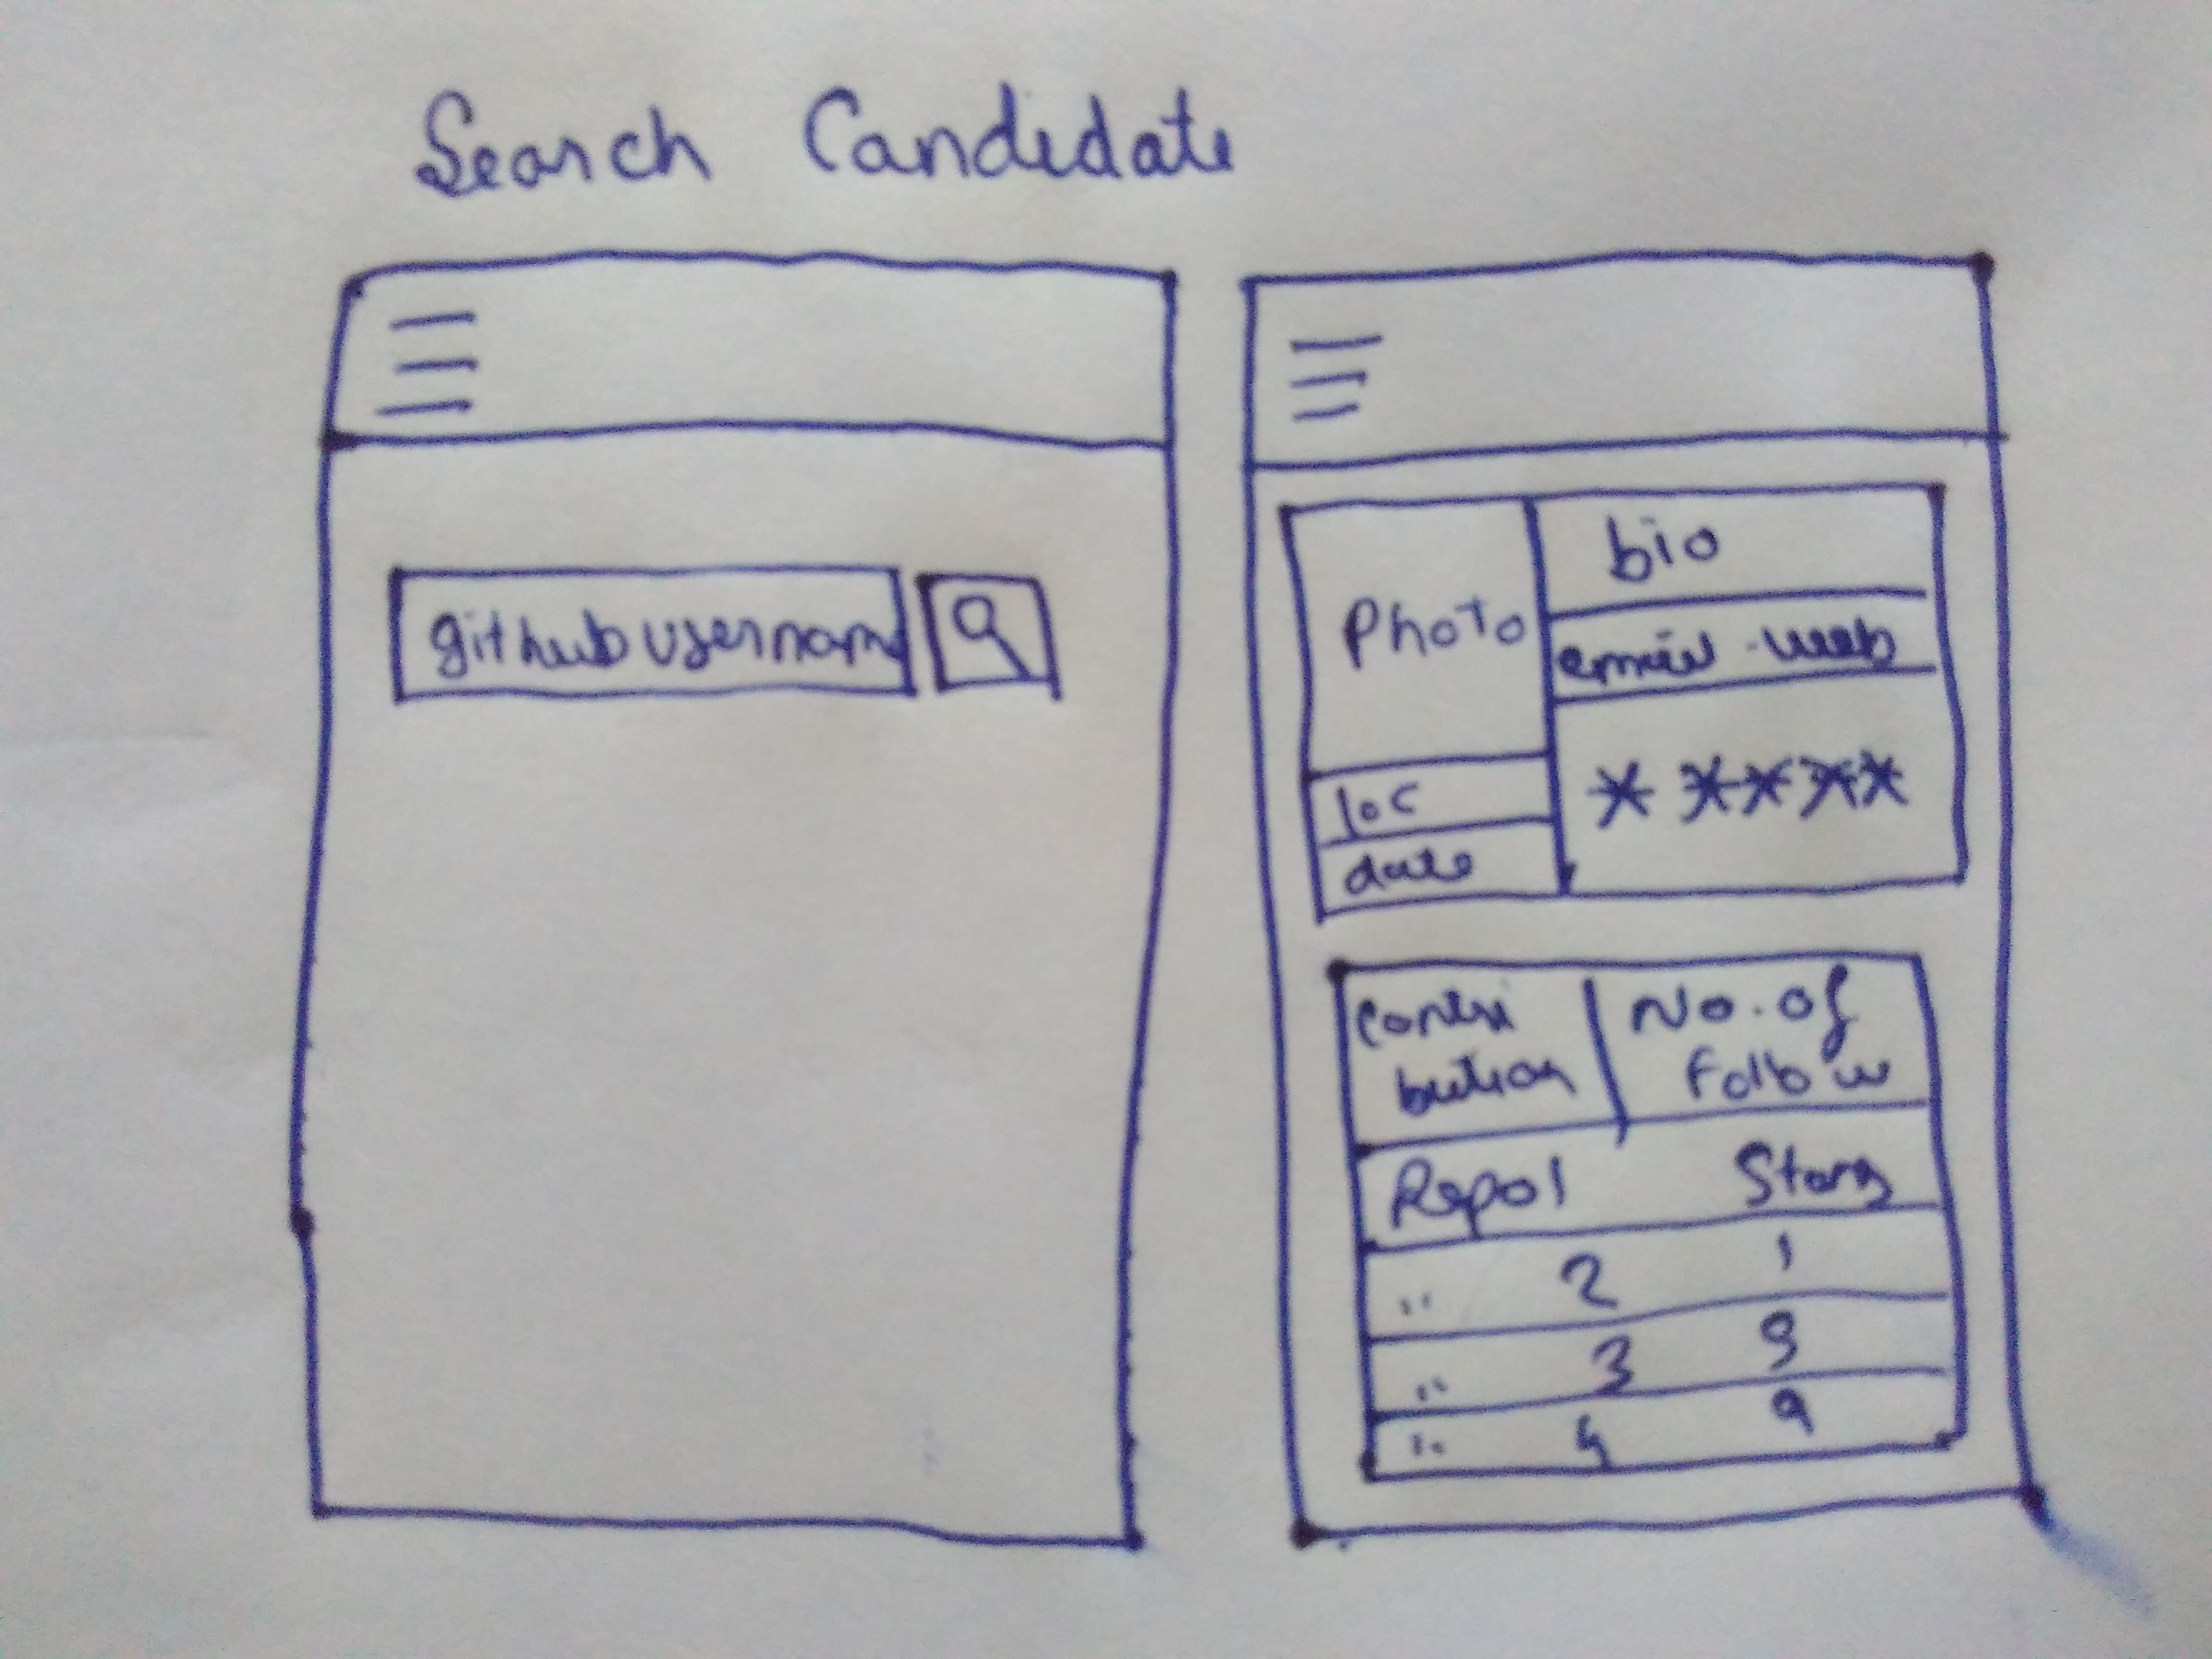 Search Candidate
github usernam
Photo
loc
date
bio
email web
* ****
contri
bution
No. of
Follow
Repo1 Stars
" 2 1
" 3 9
" 4 9